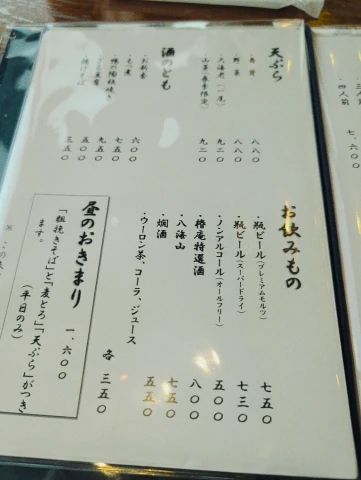 四人前
七、六〇〇
天ぷら
・野菜 八八〇
・大海老（一尾） 九二〇
・山菜（春季限定） 九二〇
酒のとも
・お新香 六〇〇
・もつ煮 七五〇
・鴨の陶板焼き 九五〇
五〇〇
・揚げそば 三五〇
お飲みもの
・瓶ビール（プレミアムモルツ） 七五〇
・瓶ビール（スーパードライ） 七三〇
・ノンアルコール（オールフリー） 五〇〇
・椿庵特選酒 八〇〇
・八海山 七五〇
・燗酒 五五〇
・ウーロン茶、コーラ、ジュース 各 三五〇
昼のおきまり 一、六〇〇
「粗挽きそば」と「麦とろ」「天ぷら」がつき
ます。 （平日のみ）